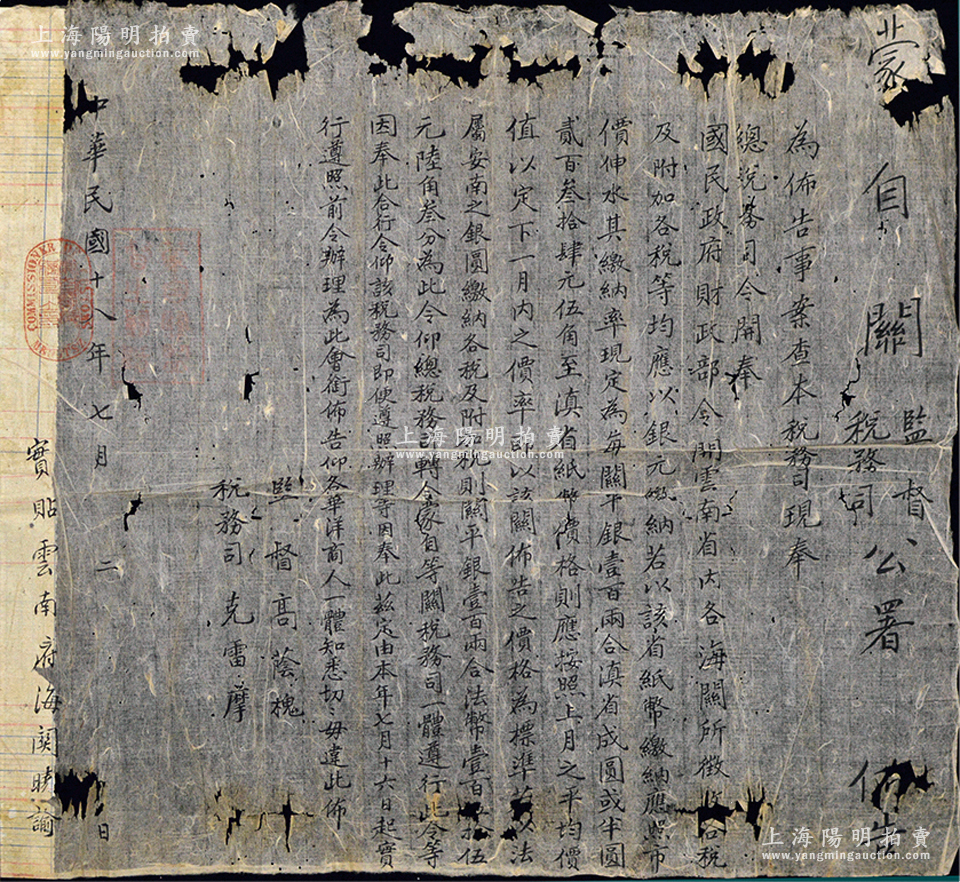 蒙自關監督稅務司公署佈告
為佈告事案查本稅務司現奉
總稅務司令開奉
國民政府財政部令開雲南省內各海關所徵收各稅
及附加各稅等均應以銀元繳納若以該省紙幣繳納應照市
價伸水其繳納率現定為每關平銀壹百兩合滇省成圓或半圓
貳百叁拾肆元伍角至滇省紙幣價格則應按照上月之平均價
值以定下一月內之價率即以該關佈告之價格為標準若以法
屬安南之銀圓繳納各稅及附加稅則關平銀壹百兩合法幣壹百拾伍
元陸角叁分為此令仰總稅務司轉令蒙自等關稅務司一體遵行此令等
因奉此合行令仰該稅務司即便遵照辦理等因奉此茲定由本年七月十六日起實
行遵照前令辦理為此會銜佈告仰各華洋商人一體知悉切切毋違此佈
監督高蔭槐
稅務司克雷摩
中華民國十八年七月二日
實貼雲南府海關曉諭
COMMISSIONER OF CUSTOMS
上海陽明拍賣
www.yangmingauction.com
上海陽明拍賣
www.yangmingauction.com
上海陽明拍賣
www.yangmingauction.com
上海陽明拍賣
www.yangmingauction.com